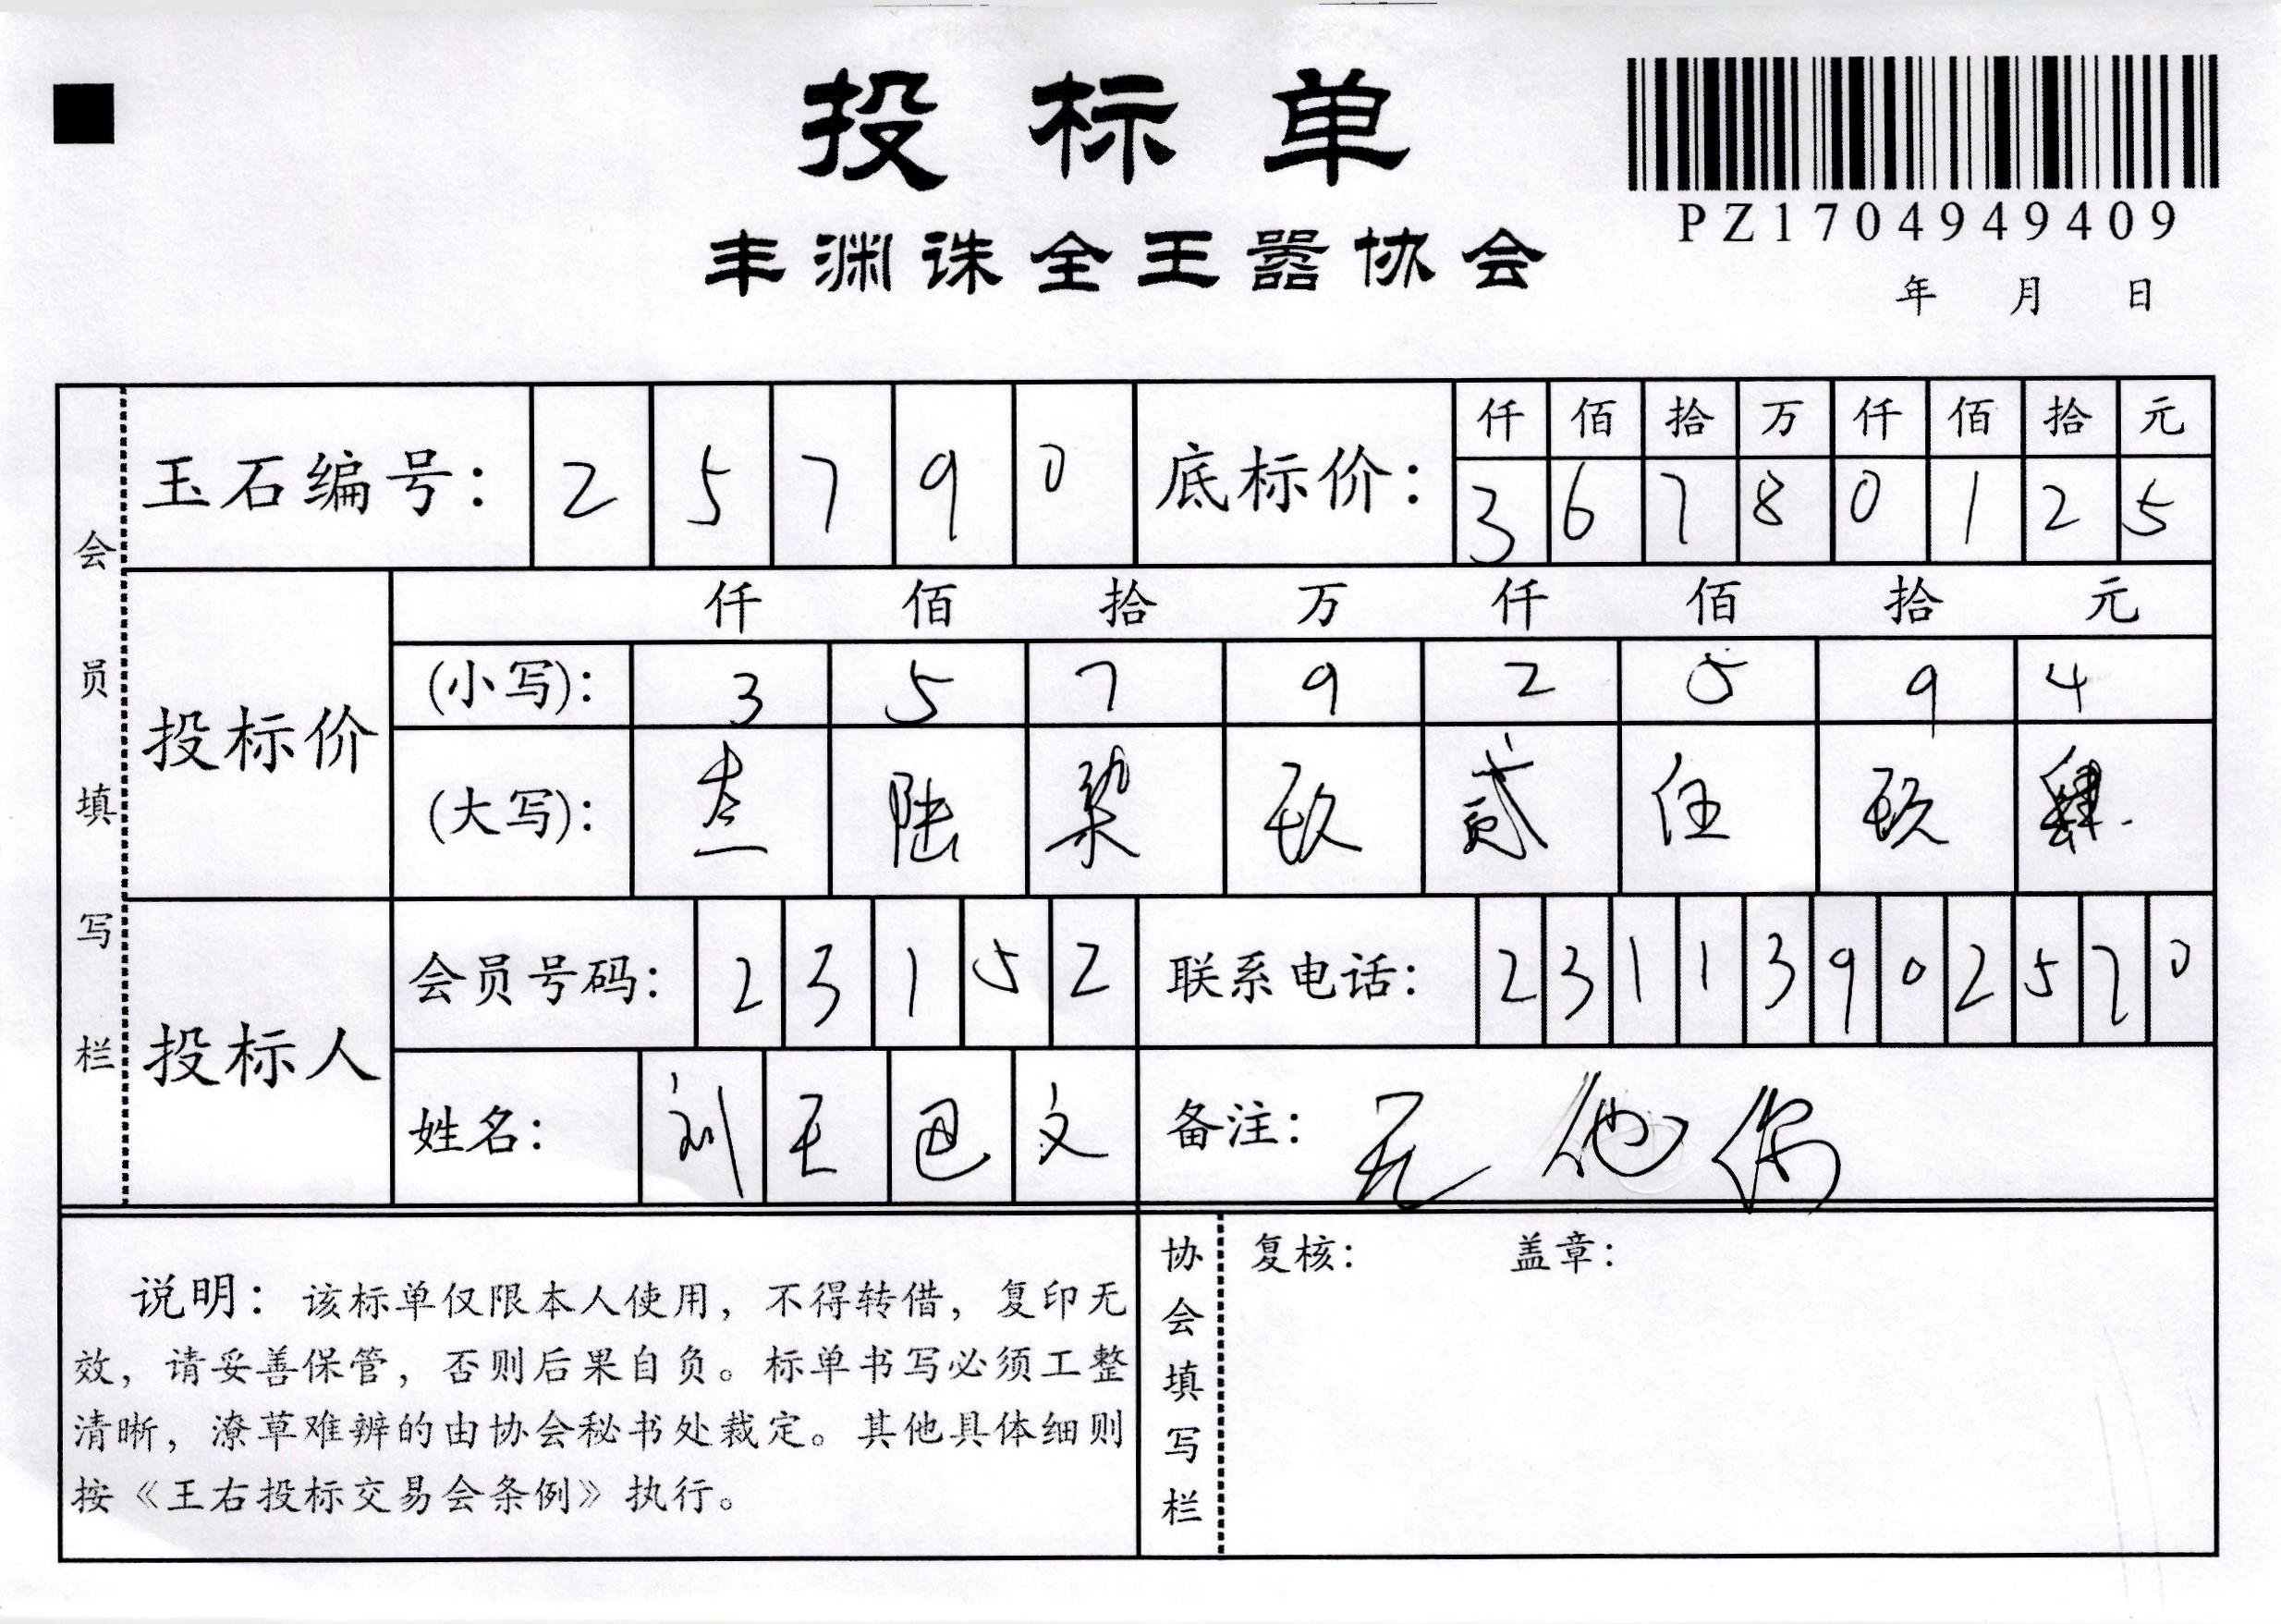 投标单
PZ1704949409
丰渊诛全王器协会
年 月 日
会员填写栏
玉石编号: 2 5 7 9 0
底标价:
仟 佰 拾 万 仟 佰 拾 元
3 6 7 8 0 1 2 5
投标价
仟 佰 拾 万 仟 佰 拾 元
(小写): 3 5 7 9 2 5 9 4
(大写): 叁 陆 柒 玖 贰 伍 玖 肆
投标人
会员号码: 2 3 1 5 2
联系电话: 2 3 1 1 3 9 0 2 5 7 0
姓名: 刘 王 文
备注: 无 他 你
说明: 该标单仅限本人使用, 不得转借, 复印无
效, 请妥善保管, 否则后果自负。标单书写必须工整
清晰, 潦草难辨的由协会秘书处裁定。其他具体细则
按《王右投标交易会条例》执行。
协会填写栏
复核: 盖章: